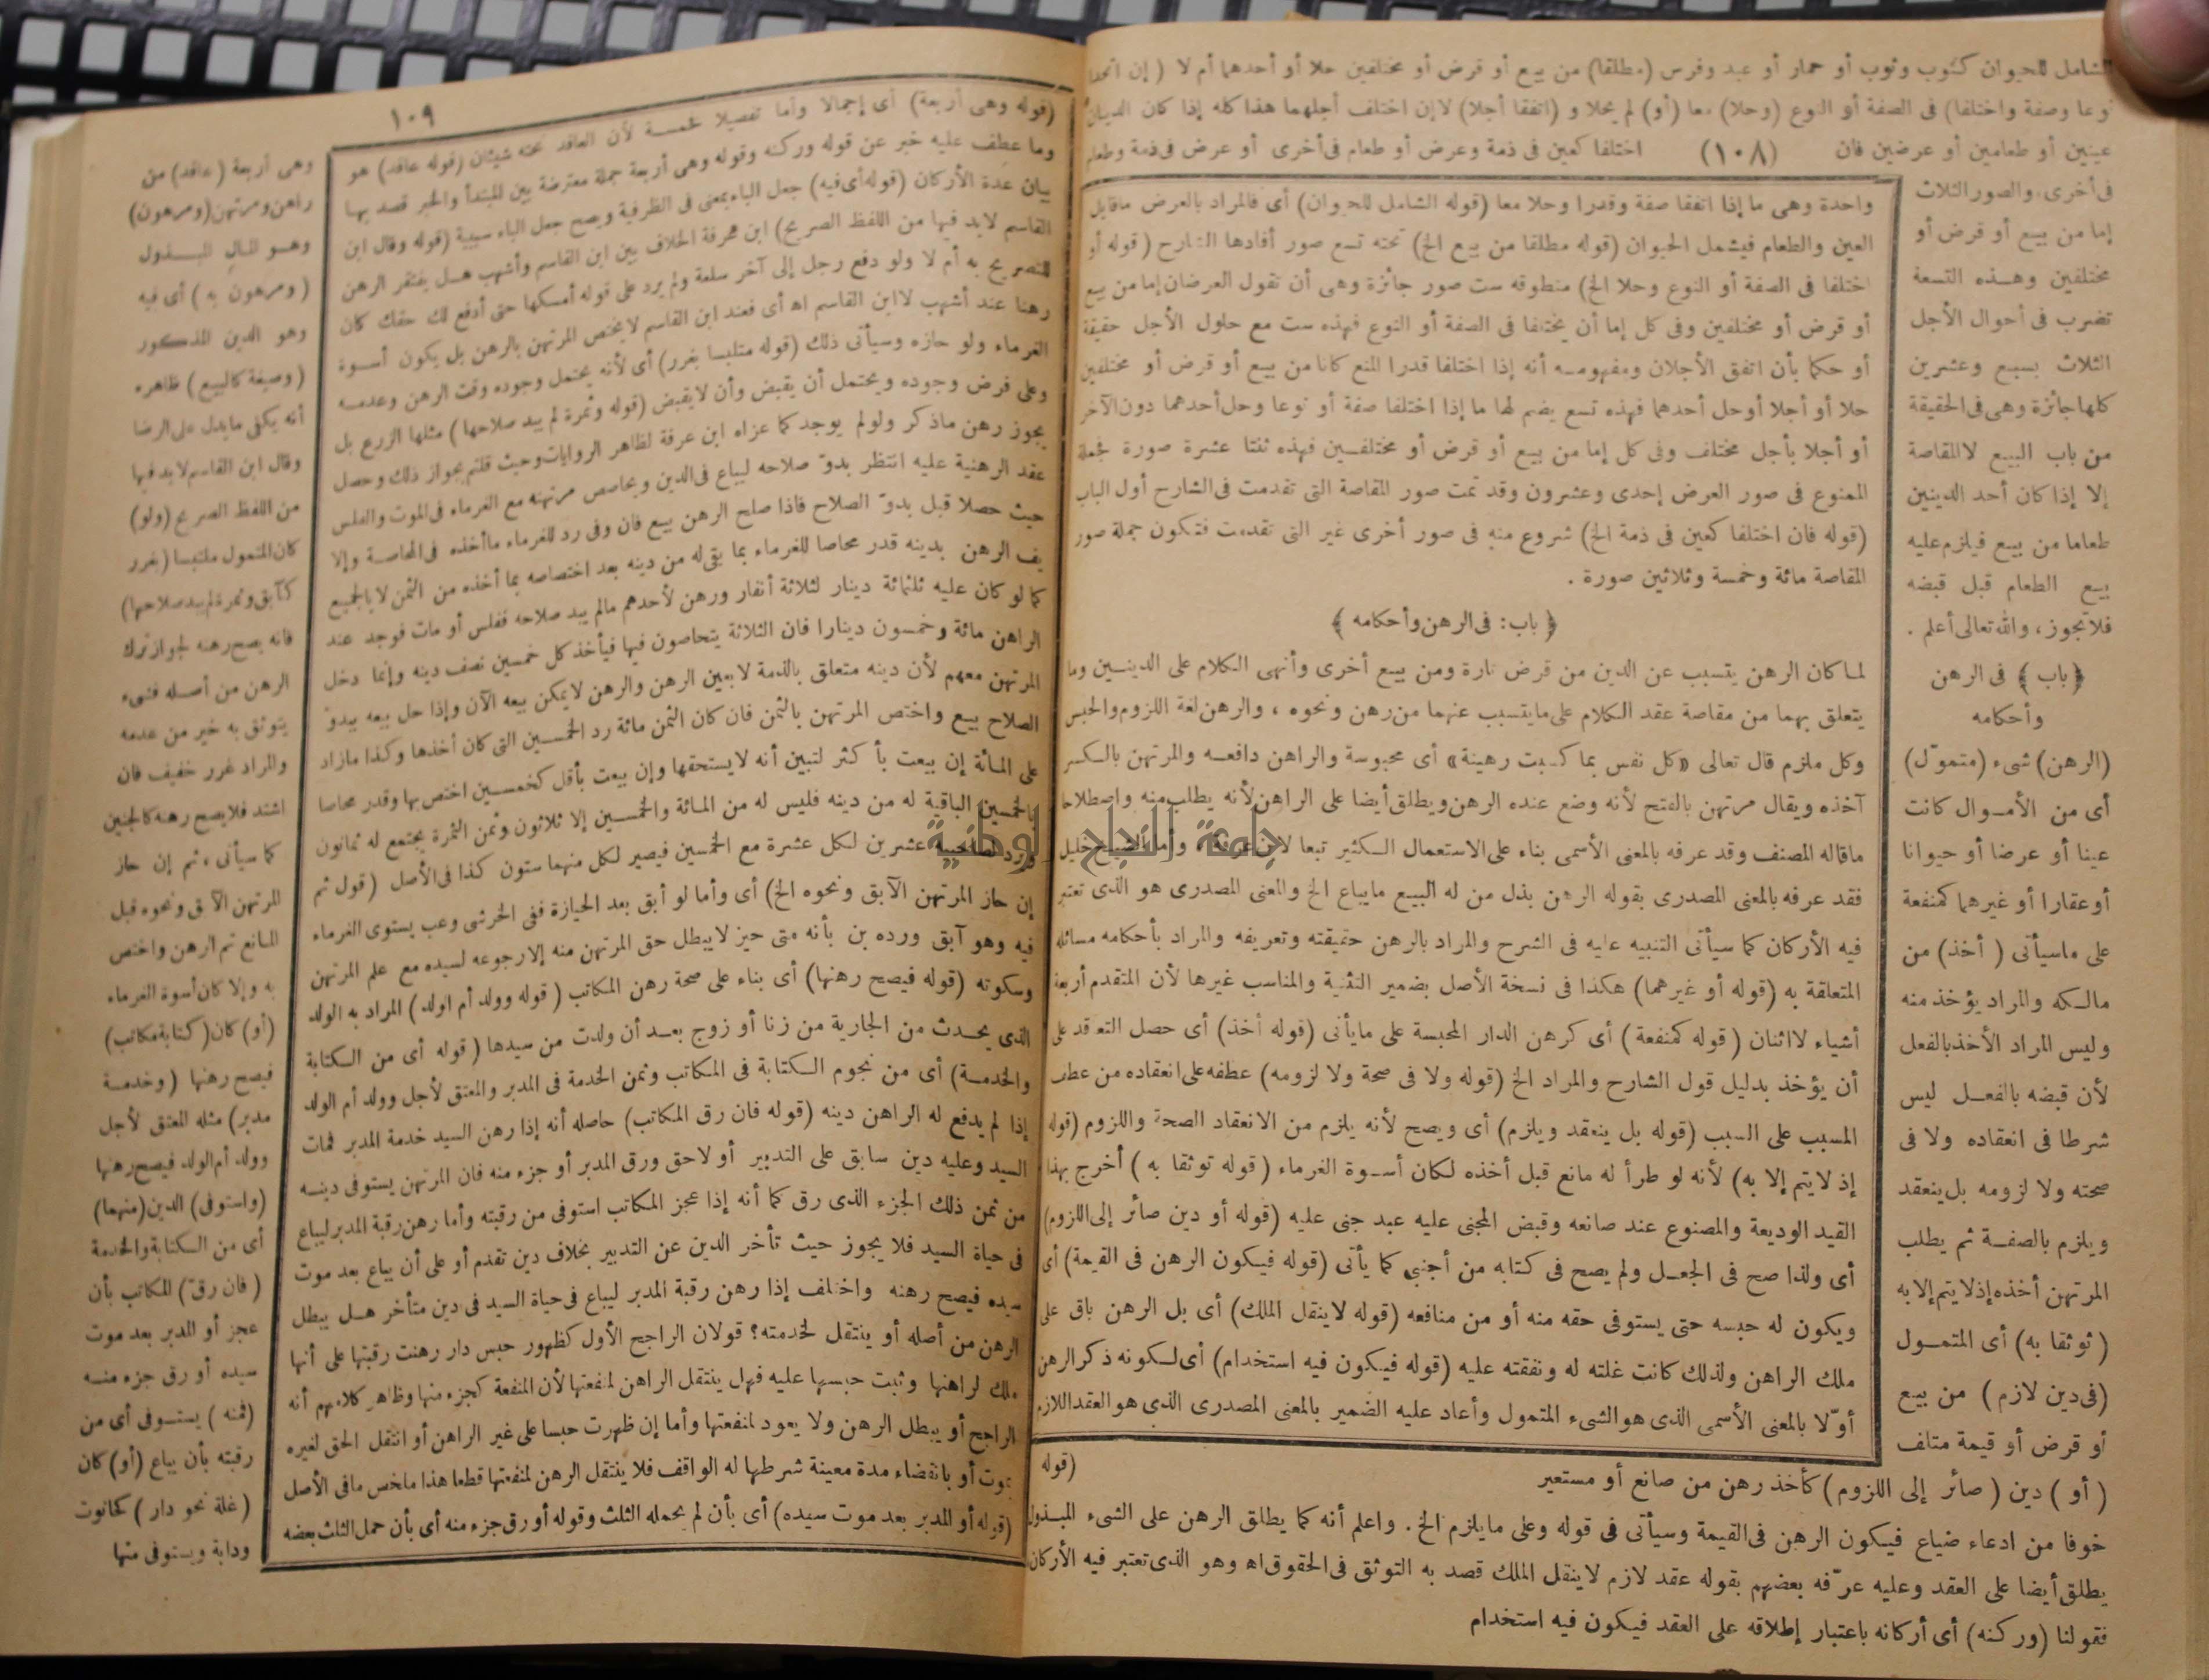 الشامل للحيوان كثوب وثوب أو حمار أو عبد وفرس (مطلقا) من بيع أو قرض أو مختلفين حلا أو أحدهما أم لا (إن اتحدا
نوعا وصفة واختلفا) فى الصفة أو النوع (وحلا) معا (أو) لم يحلا و (اتفقا أجلا) لا إن اختلف أجلهما هذا كله إذا كان الدينان
عينين أو طعامين أو عرضين فان (١٠٨) اختلفا كعين فى ذمة وعرض أو طعام فى أخرى أو عرض فى ذمة وطعام
فى أخرى، والصور الثلاث
إما من بيع أو قرض أو
مختلفين وهذه التسعة
تضرب فى أحوال الأجل
الثلاث بسبع وعشرين
كلها جائزة وهى فى الحقيقة
من باب البيع لا المقاصة
إلا إذا كان أحد الدينين
طعاما من بيع فيلزم عليه
بيع الطعام قبل قبضه
فلا تجوز، والله تعالى أعلم .
﴿باب﴾ فى الرهن
وأحكامه
(الرهن) شىء (متموّل)
أى من الأموال كانت
عينا أو عرضا أو حيوانا
أو عقارا أو غيرهما كمنفعة
على ماسيأتى (أخذ) من
مالكه والمراد يؤخذ منه
وليس المراد الأخذ بالفعل
لأن قبضه بالفعل ليس
شرطا فى انعقاده ولا فى
صحته ولا لزومه بل ينعقد
ويلزم بالصفة ثم يطلب
المرتهن أخذه إذ لا يتم إلا به
(توثقا به) أى المتمول
(فى دين لازم) من بيع
أو قرض أو قيمة متلف
(أو) دين (صائر إلى اللزوم) كأخذ رهن من صانع أو مستعير
خوفا من ادعاء ضياع فيكون الرهن فى القيمة وسيأتى فى قوله وعلى مايلزم الخ . واعلم أنه كما يطلق الرهن على الشىء المبذول
يطلق أيضا على العقد وعليه عرّفه بعضهم بقوله عقد لازم لاينقل الملك قصد به التوثق فى الحقوق اه وهو الذى تعتبر فيه الأركان
فقولنا (وركنه) أى أركانه باعتبار إطلاقه على العقد فيكون فيه استخدام
واحدة وهى ما إذا اتفقا صفة وقدرا وحلا معا (قوله الشامل للحيوان) أى فالمراد بالعرض ماقابل
العين والطعام فيشمل الحيوان (قوله مطلقا من بيع الخ) تحته تسع صور أفادها الشارح (قوله أو
اختلفا فى الصفة أو النوع وحلا الخ) منطوقه ست صور جائزة وهى أن تقول العرضان إما من بيع
أو قرض أو مختلفين وفى كل إما أن يختلفا فى الصفة أو النوع فهذه ست مع حلول الأجل حقيقة
أو حكما بأن اتفق الأجلان ومفهومه أنه إذا اختلفا قدرا المنع كانا من بيع أو قرض أو مختلفين
حلا أو أجلا أو حل أحدهما فهذه تسع يضم لها ما إذا اختلفا صفة أو نوعا وحل أحدهما دون الآخر
أو أجلا بأجل مختلف وفى كل إما من بيع أو قرض أو مختلفين فهذه ثنتا عشرة صورة فجملة
الممنوع فى صور العرض إحدى وعشرون وقد تمت صور المقاصة التى تقدمت فى الشارح أول الباب
(قوله فان اختلفا كعين فى ذمة الخ) شروع منه فى صور أخرى غير التى تقدمت فتكون جملة صور
المقاصة مائة وخمسة وثلاثين صورة .
﴿باب: فى الرهن وأحكامه﴾
لما كان الرهن يتسبب عن الدين من قرض تارة ومن بيع أخرى وأنهى الكلام على الدينين وما
يتعلق بهما من مقاصة عقد الكلام على مايتسبب عنهما من رهن ونحوه ، والرهن لغة اللزوم والحبس
وكل ملزم قال تعالى «كل نفس بما كسبت رهينة» أى محبوسة والراهن دافعه والمرتهن بالكسر
آخذه ويقال مرتهن بالفتح لأنه وضع عنده الرهن ويطلق أيضا على الراهن لأنه يطلب منه واصطلاحا
ماقاله المصنف وقد عرفه بالمعنى الأسمى بناء على الاستعمال الكثير تبعا لابن عرفة ، وأما الشيخ خليل
فقد عرفه بالمعنى المصدرى بقوله الرهن بذل من له البيع مايباع الخ والمعنى المصدرى هو الذى تعتبر
فيه الأركان كما سيأتى التنبيه عليه فى الشرح والمراد بالرهن حقيقته وتعريفه والمراد بأحكامه مسائله
المتعلقة به (قوله أو غيرهما) هكذا فى نسخة الأصل بضمير التثنية والمناسب غيرها لأن المتقدم أربعة
أشياء لا اثنان (قوله كمنفعة) أى كرهن الدار المحبسة على مايأتى (قوله أخذ) أى حصل التعاقد على
أن يؤخذ بدليل قول الشارح والمراد الخ (قوله ولا فى صحة ولا لزومه) عطفه على انعقاده من عطف
المسبب على السبب (قوله بل ينعقد ويلزم) أى ويصح لأنه يلزم من الانعقاد الصحة واللزوم (قوله
إذ لايتم إلا به) لأنه لو طرأ له مانع قبل أخذه لكان أسوة الغرماء (قوله توثقا به) أخرج بهذا
القيد الوديعة والمصنوع عند صانعه وقبض المجنى عليه عبد جنى عليه (قوله أو دين صائر إلى اللزوم)
أى ولذا صح فى الجعل ولم يصح فى كتابه من أجنبى كما يأتى (قوله فيكون الرهن فى القيمة) أى
ويكون له حبسه حتى يستوفى حقه منه أو من منافعه (قوله لاينقل الملك) أى بل الرهن باق على
ملك الراهن ولذلك كانت غلته له ونفقته عليه (قوله فيكون فيه استخدام) أى لكونه ذكر الرهن
أوّلا بالمعنى الأسمى الذى هو الشىء المتمول وأعاد عليه الضمير بالمعنى المصدرى الذى هو العقد اللازم
(قوله
١٠٩
وهى أربعة (عاقد) من
راهن ومرتهن (ومرهون)
وهو المال المبذول
(ومرهون به) أى فيه
وهو الدين المذكور
(وصيغة كالبيع) ظاهره
أنه يكفى مايدل على الرضا
وقال ابن القاسم لابد فيها
من اللفظ الصريح (ولو)
كان المتمول ملتبسا (بغرر
كآبق وثمرة لم يبد صلاحها)
فانه يصح رهنه لجواز ترك
الرهن من أصله فشىء
يتوثق به خير من عدمه
والمراد غرر خفيف فان
اشتد فلا يصح رهنه كالجنين
كما سيأتى ، ثم إن حاز
المرتهن الآبق ونحوه قبل
المانع تم الرهن واختص
به وإلا كان أسوة الغرماء
(أو) كان (كتابة مكاتب)
فيصح رهنها (وخدمة
مدبر) مثله المعتق لأجل
وولد أم الولد فيصح رهنها
(واستوفى) الدين (منهما)
أى من الكتابة والخدمة
(فان رقّ) المكاتب بأن
عجز أو المدبر بعد موت
سيده أو رق جزء منه
(فمنه) يستوفى أى من
رقبته بأن يباع (أو) كان
(غلة نحو دار) كحانوت
ودابة ويستوفى منها
(قوله وهى أربعة) أى إجمالا وأما تفصيلا خمسة لأن العاقد تحته شيئان (قوله عاقد) هو
وما عطف عليه خبر عن قوله وركنه وقوله وهى أربعة جملة معترضة بين المبتدأ والخبر قصد بها
بيان عدة الأركان (قوله أى فيه) جعل الباء بمعنى فى الظرفية ويصح جعل الباء سببية (قوله وقال ابن
القاسم لابد فيها من اللفظ الصريح) ابن عرفة الخلاف بين ابن القاسم وأشهب هل يفتقر الرهن
للتصريح به أم لا ولو دفع رجل إلى آخر سلعة ولم يرد على قوله أمسكها حتى أدفع لك حقك كان
رهنا عند أشهب لا ابن القاسم اه أى فعند ابن القاسم لايختص المرتهن بالرهن بل يكون أسوة
الغرماء ولو حازه وسيأتى ذلك (قوله متلبسا بغرر) أى لأنه يحتمل وجوده وقت الرهن وعدمه
وعلى فرض وجوده ويحتمل أن يقبض وأن لايقبض (قوله وثمرة لم يبد صلاحها) مثلها الزرع بل
يجوز رهن ماذكر ولو لم يوجد كما عزاه ابن عرفة لظاهر الروايات وحيث قلتم بجواز ذلك وحصل
عقد الرهنية عليه انتظر بدوّ صلاحه ليباع فى الدين ويحاصص مرتهنه مع الغرماء فى الموت والفلس
حيث حصلا قبل بدوّ الصلاح فاذا صلح الرهن بيع فان وفى رد للغرماء ماأخذه فى المحاصة وإلا
يف الرهن بدينه قدر محاصا للغرماء بما بقى له من دينه بعد اختصاصه بما أخذه من الثمن لا بالجميع
كما لو كان عليه ثلثمائة دينار لثلاثة أنفار ورهن لأحدهم مالم يبد صلاحه ففلس أو مات فوجد عند
الراهن مائة وخمسون دينارا فان الثلاثة يتحاصون فيها فيأخذ كل خمسين نصف دينه وإنما دخل
المرتهن معهم لأن دينه متعلق بالذمة لا بعين الرهن والرهن لايمكن بيعه الآن وإذا حل بيعه ببدوّ
الصلاح بيع واختص المرتهن بالثمن فان كان الثمن مائة رد الخمسين التى كان أخذها وكذا مازاد
على المائة إن بيعت بأكثر لتبين أنه لايستحقها وإن بيعت بأقل كخمسين اختص بها وقدر محاصا
بالخمسين الباقية له من دينه فليس له من المائة والخمسين إلا ثلاثون وثمن الثمرة يجتمع له ثمانون
ويرد لصاحبيه عشرين لكل عشرة مع الخمسين فيصير لكل منهما ستون كذا فى الأصل (قول ثم
إن حاز المرتهن الآبق ونحوه الخ) أى وأما لو أبق بعد الحيازة ففى الخرشى وعب يستوى الغرماء
فيه وهو آبق ورده بن بأنه متى حيز لايبطل حق المرتهن منه إلا رجوعه لسيده مع علم المرتهن
وسكوته (قوله فيصح رهنها) أى بناء على صحة رهن المكاتب (قوله وولد أم الولد) المراد به الولد
الذى يحدث من الجارية من زنا أو زوج بعد أن ولدت من سيدها (قوله أى من الكتابة
والخدمة) أى من نجوم الكتابة فى المكاتب وثمن الخدمة فى المدبر والمعتق لأجل وولد أم الولد
إذا لم يدفع له الراهن دينه (قوله فان رق المكاتب) حاصله أنه إذا رهن السيد خدمة المدبر فمات
السيد وعليه دين سابق على التدبير أو لاحق ورق المدبر أو جزء منه فان المرتهن يستوفى دينه
من ثمن ذلك الجزء الذى رق كما أنه إذا عجز المكاتب استوفى من رقبته وأما رهن رقبة المدبر ليباع
فى حياة السيد فلا يجوز حيث تأخر الدين عن التدبير بخلاف دين تقدم أو على أن يباع بعد موت
سيده فيصح رهنه واختلف إذا رهن رقبة المدبر ليباع فى حياة السيد فى دين متأخر هل يبطل
الرهن من أصله أو ينتقل لخدمته؟ قولان الراجح الأول كظهور حبس دار رهنت رقبتها على أنها
ملك لراهنها وثبت حبسها عليه فهل ينتقل الراهن لمنفعتها لأن المنفعة كجزء منها وظاهر كلامهم أنه
الراجح أو يبطل الرهن ولا يعود لمنفعتها وأما إن ظهرت حبسا على غير الراهن أو انتقل الحق لغيره
بموت أو بانقضاء مدة معينة شرطها له الواقف فلا ينتقل الرهن لمنفعتها قطعا هذا ملخص مافى الأصل
(قوله أو المدبر بعد موت سيده) أى بأن لم يحمله الثلث وقوله أو رق جزء منه أى بأن حمل الثلث بعضه
جامعة النجاح الوطنية